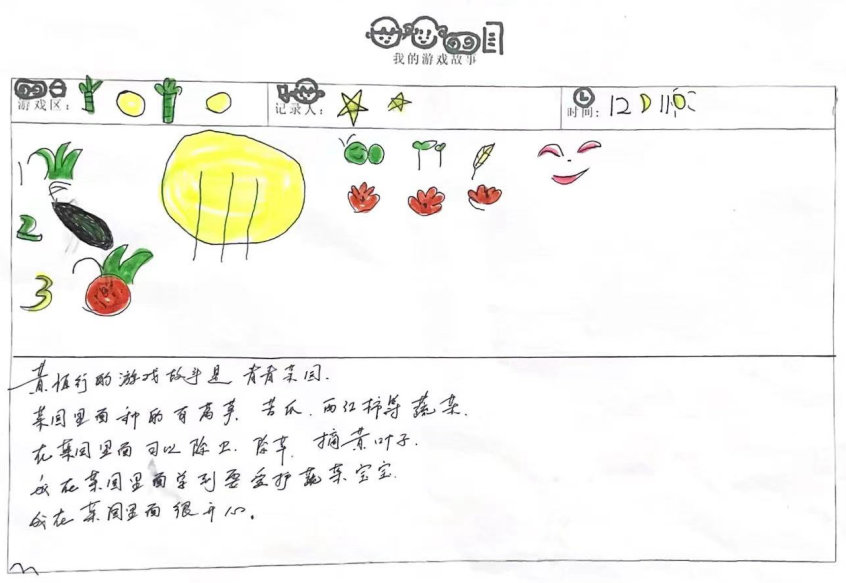 我的游戏故事
游戏区：
记录人：
时间：12 11
1
2
3
黄恒行的游戏故事是青青菜园.
菜园里面种的有莴笋、苦瓜、西红柿等蔬菜.
在菜园里面可以除虫、除草、摘黄叶子.
我在菜园里面学到要爱护蔬菜宝宝.
我在菜园里面很开心。